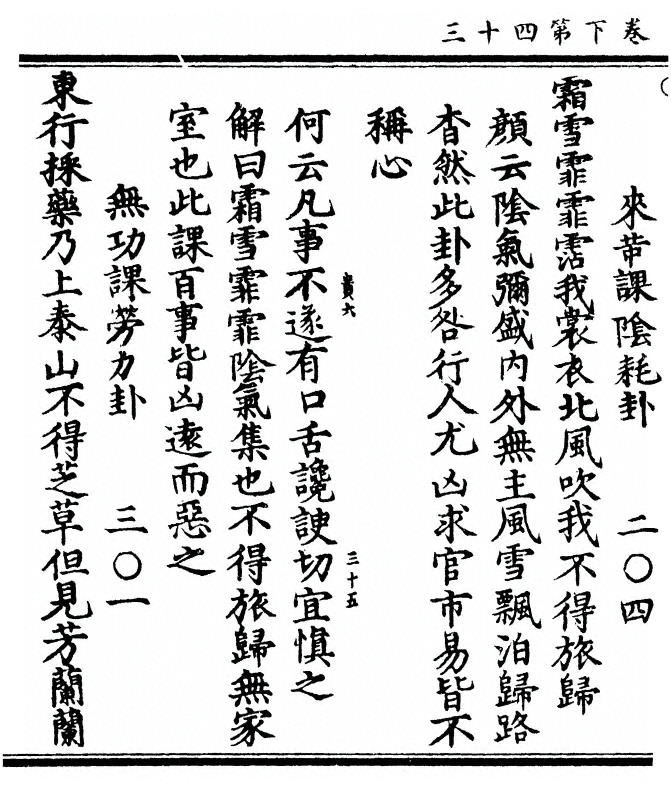 卷下第四十三
來苦課陰耗卦 二〇四
霜雪霏霏霑我裳衣北風吹我不得旅歸
顏云陰氣彌盛內外無主風雪飄泊歸路
杳然此卦多咎行人尤凶求官市易皆不
稱心
貴六 三十五
何云凡事不遂有口舌讒諛切宜慎之
解曰霜雪霏霏陰氣集也不得旅歸無家
室也此課百事皆凶遠而惡之
無功課勞力卦 三〇一
東行採藥乃上泰山不得芝草但見芳蘭蘭